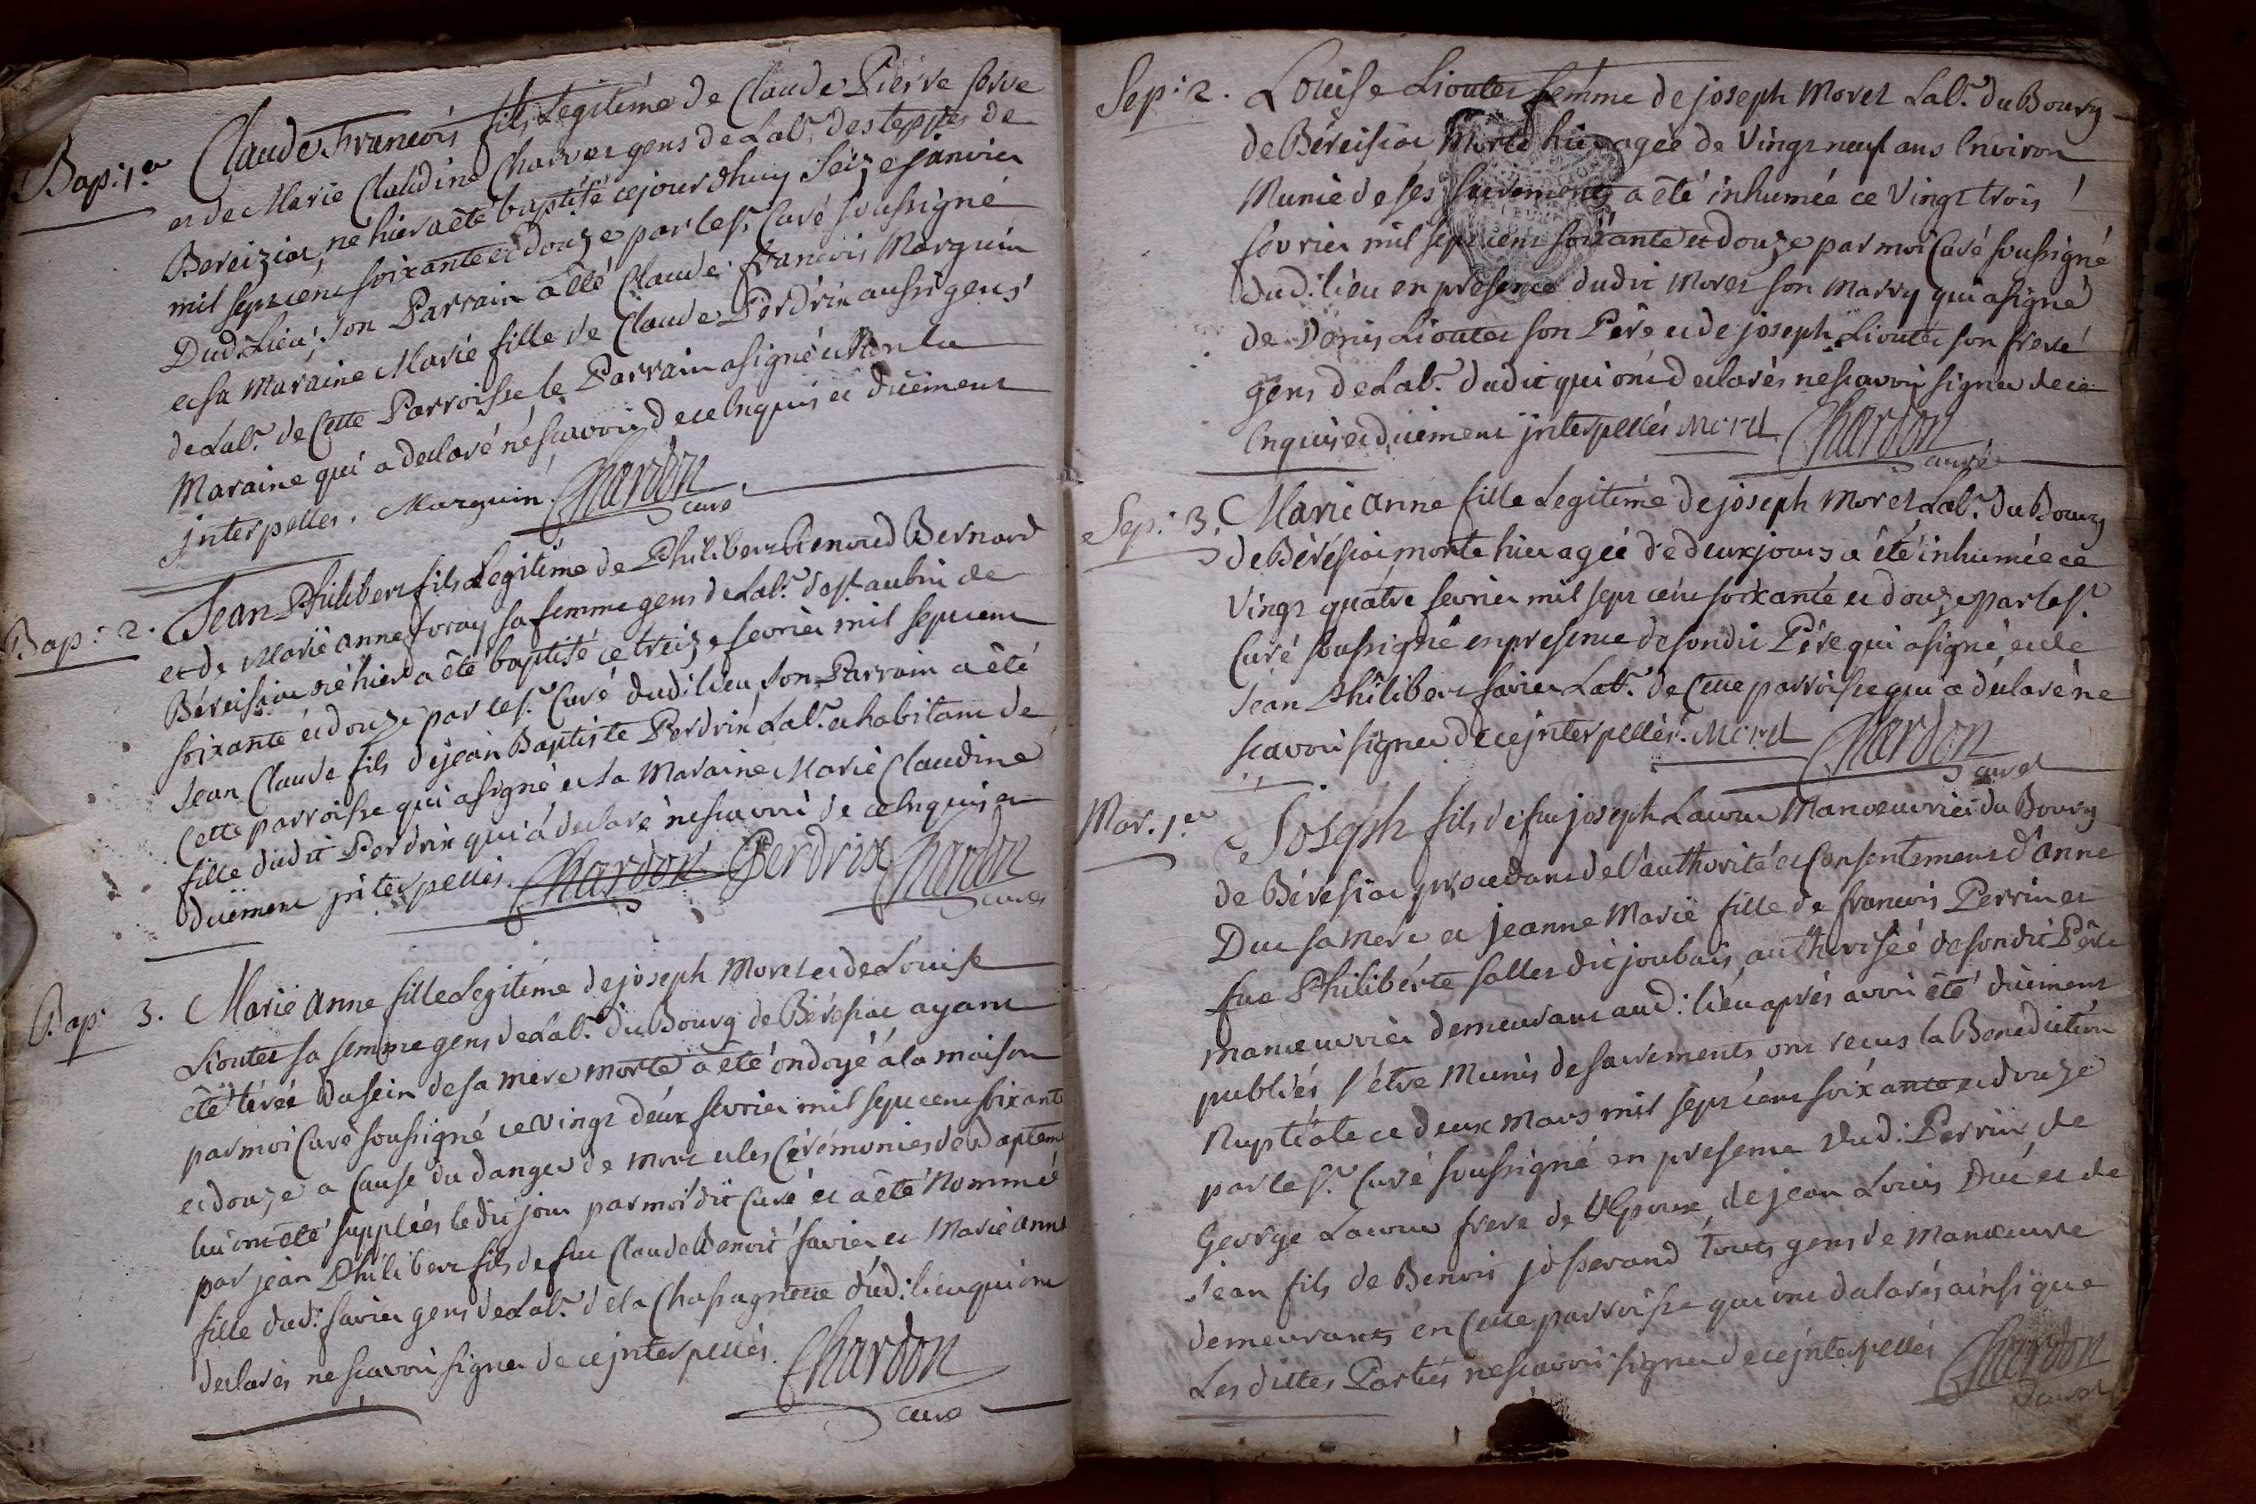 Bap: 1.er
Claude François fils Legitime de Claude Pierre
et de Marie Claudine gens de Lab.r des teppes de
Bereiziat, né hier a été baptisé ce jourdhuy seize janvier
mil sept cent soixante et douze par le s.r Curé soussigné
Dud: Lieu. son Parrain a été Claude françois Marguin
et sa Maraine Marie fille de Claude Perdrix aussi gens
de Lab.r de Cette Parroisse le Parrain a signé et Non la
Maraine qui a declaré ne scavoir de ce Enquis et düement
jnterpellés. Marguin Chardon
curé
Bap: 2.
Jean Philibert fils Legitime de Philibert Bernard
et de Marie anne favay sa femme gens de Lab.r de st aubin de
Béreisiat né hier a été baptisé ce treize fevrier mil sept cent
soixante et douze par le s.r Curé dud: lieu, son Parrain a été
Jean Claude fils de jean Baptiste Perdrix Lab.r et habitant de
Cette parroisse qui a signé et sa Maraine Marie Claudine
fille dudit Perdrix qui a declaré ne scavoir de ce Enquis et
düement jnterpellés. Chardon Perdrix Chardon
curé
Bap: 3.
Marie anne fille Legitime de joseph Morel et de Louise
Liontet sa femme gens de Lab.r du Bourg de Béréssiat ayant
été tirée du sein de sa mere morte a été ondoyé a la maison
par moi Curé soussigné ce vingt deux fevrier mil sept cent soixante
et douze a Cause du danger de mort et les Cérémonies de Bapteme
lui ont été supplées ledit jour par moi dit Curé et a été Nommé
par jean Philibert fils de feu Claude Benoit favier et Marie anne
fille dud: favier gens de Lab.r de la Chassagnole dud: lieu qui ont
declarés ne scavoir signer de ce jnterpellés. Chardon
curé
Sep: 2.
Louise Liontet femme de joseph Morel Lab.r du Bourg
de Béreisiat Morte hier agée de vingt neuf ans Environ
Munie de ses sacrements a été inhumée ce vingt trois
fevrier mil sept cent soixante et douze par moi Curé soussigné
dud: lieu en présence dudit Morel son Marry qui a signé
de Denis Liontet son Pere et de joseph Liontet son frere
gens de Lab.r dudit qui ont declarés ne scavoir signer de ce
Enquis et düement jnterpellés Morel Chardon
curé
Sep: 3.
Marie anne fille Legitime de joseph Morel Lab.r du Bourg
de Béréssiat morte hier agée de deux jours a été inhumée ce
vingt quatre fevrier mil sept cent soixante et douze par le s.r
Curé soussigné en presence de sondit Pére qui a signé, et de
Jean Philibert favier Lab.r de Cette parroisse qui a declaré ne
scavoir signer de ce jnterpellés. Morel Chardon
curé
Mar. 1.er
Joseph fils de feu joseph Lacour Manoeuvrier du Bourg
de Béréssiat, procedant de l'authorité et Consentement d'anne
Duc sa Mere et jeanne Marie fille de francois Perrin et
fue Philiberte salles dit joubais, authorisée de sondit Pére
manoeuvrier demeurant aud: lieu, aprés avoir été düement
publiés s'étre Munis de sacrements ont recus la Benediction
Nuptiale ce deux Mars mil sept cent soixante et douze
par le s.r Curé soussigné en presence dud: Perrin de
George Lacour frere de l'Epoux, de jean Louis Duc et de
Jean fils de Benoit josserand touts gens de Manoeuvre
demeurants en Cette parroisse qui ont declarés ainsi que
Les dittes Parties ne scavoir signer de ce jnterpellés Chardon
curé